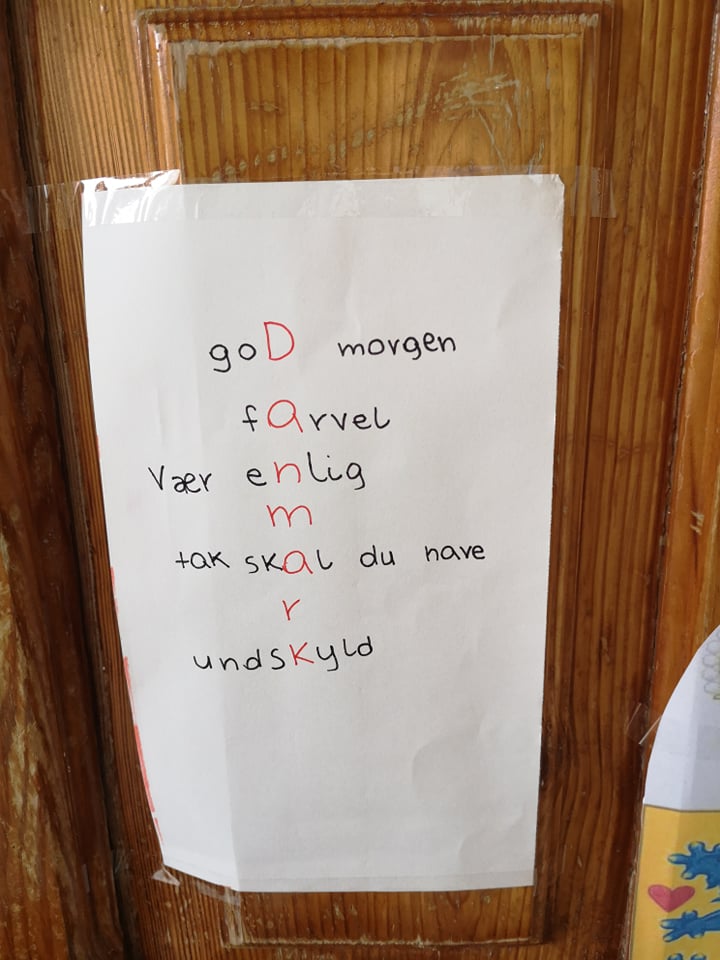 goD morgen
farvel
Vær enlig
m
tak skal du nave
r
undsKyld